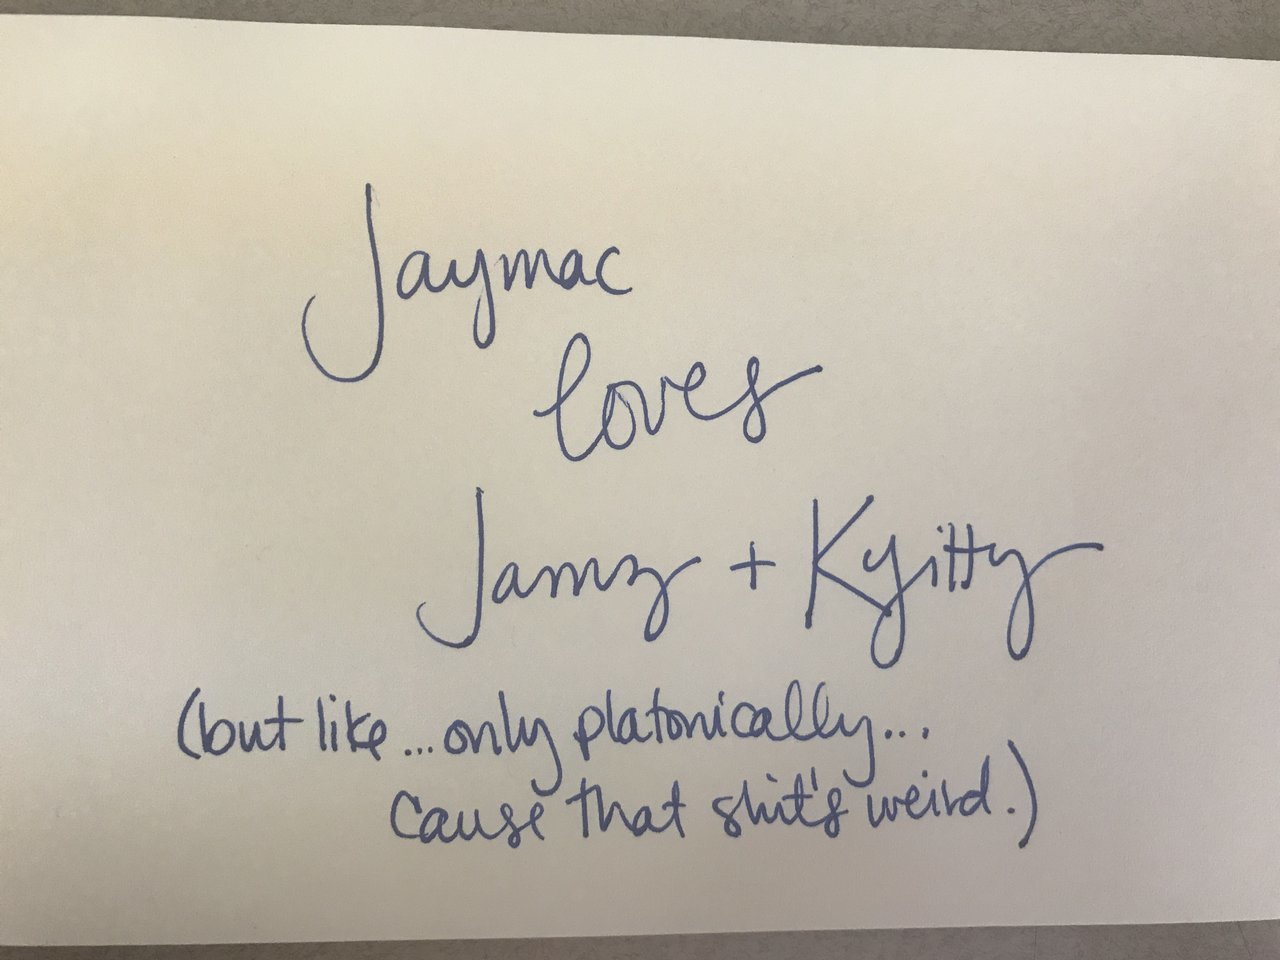 Jaymac
loves
Jamz + Kyitty
(but like...only platonically...
cause that shit's weird.)